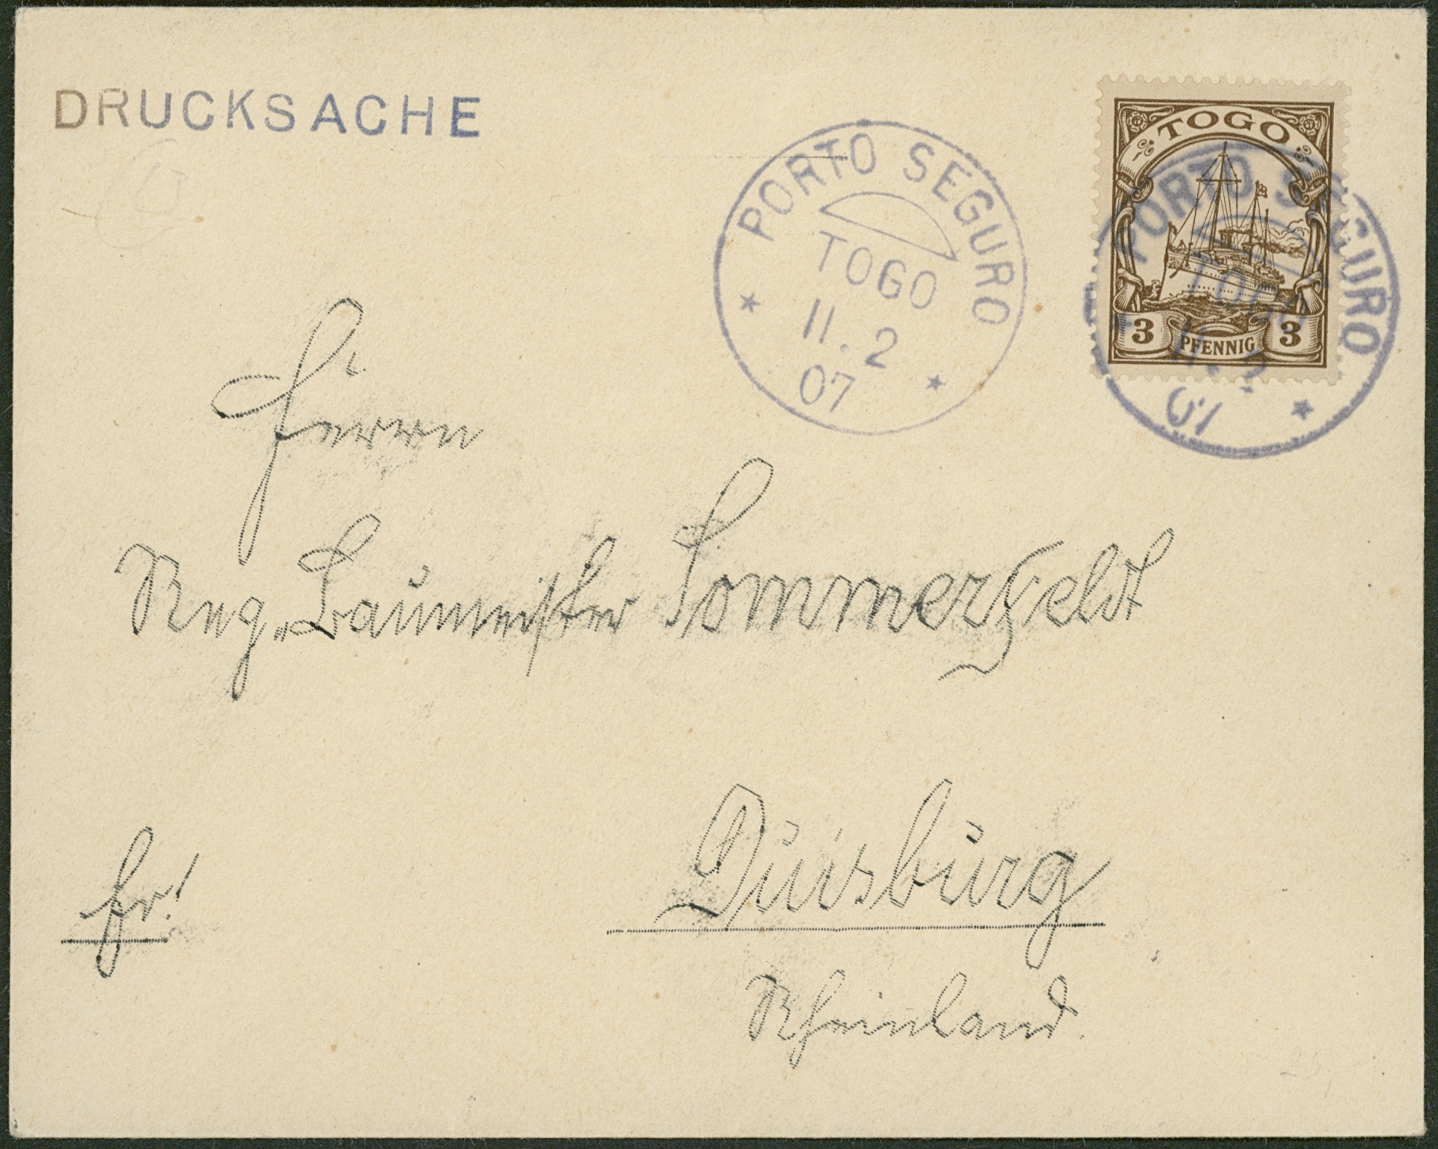 DRUCKSACHE
PORTO SEGURO
TOGO
11.2
07
TOGO
3 PFENNIG 3
PORTO SEGURO
TOGO
11.2
07
Herrn
Reg. Baumeister Sommerfeldt
Fr!
Duisburg
Rheinland.